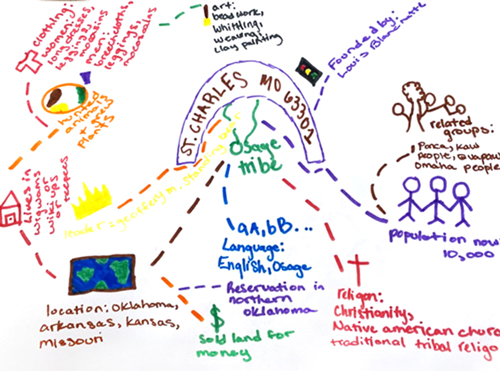 clothing:
women:
long dresses,
leggings,
moccasins
men:
breechcloths,
leggings,
moccasins
art:
beadwork,
whittling,
weaving,
clay painting
Founded by:
Louis Blanchette
ST. CHARLES MO 63302
Osage
tribe
hunted
animals
+ grew
plants
related
groups:
Ponca, Kaw
people, Quapaw
omaha people
Lives in
wigwams or
wiki ups
or
teepees
leader: geoffrey m. standing bear
population now:
10,000
aA, bB...
Language:
English, Osage
location: Oklahoma,
arkansas, Kansas,
missouri
Reservation in
northern
oklahoma
$
sold land for
money
religon:
Christianity,
Native american churc
traditional tribal religo